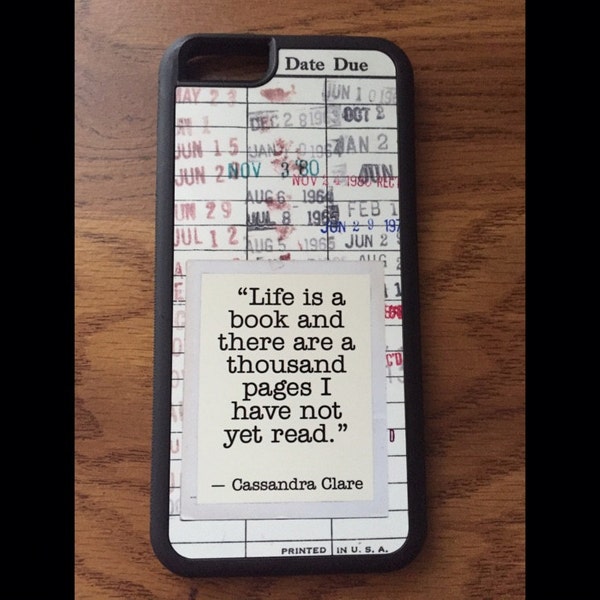 Date Due
MAY 23
JUN 10 19
DEC 28 1963
OCT 2
JUN 15
JAN 2
JUN 2
NOV 3 '80
JUN
AUG 6 1964
JUN 29
JUL 8 1965
FEB 1
JUN 29 197
JUL 12
AUG 5 1965
JUN 2
AUG 2
"Life is a
book and
there are a
thousand
pages I
have not
yet read."
— Cassandra Clare
PRINTED IN U. S. A.